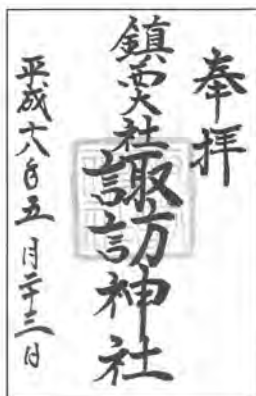 奉拝
鎮西大社
諏訪神社
平成十八年五月二十三日